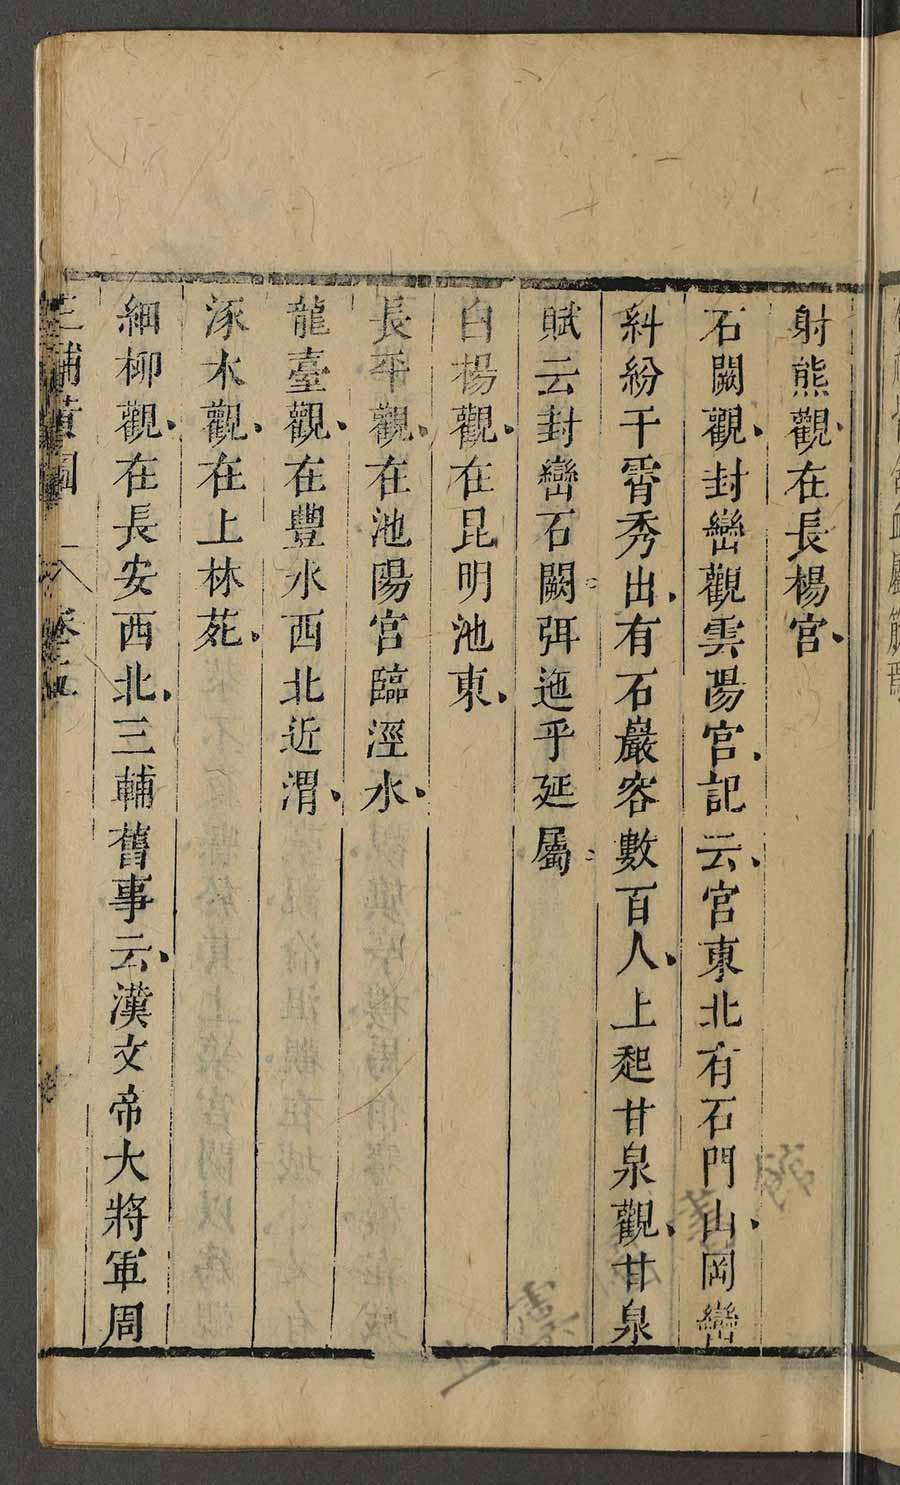 射熊觀在長楊宮
石闕觀封巒觀雲陽宮記云宮東北有石門山岡巒
糾紛干霄秀出有石巖容數百人上起甘泉觀甘泉
賦云封巒石闕弭迤乎延屬
白楊觀在昆明池東
長平觀在池陽宮臨涇水
龍臺觀在豐水西北近渭
涿木觀在上林苑
細柳觀在長安西北三輔舊事云漢文帝大將軍周
三輔黃圖 卷之五